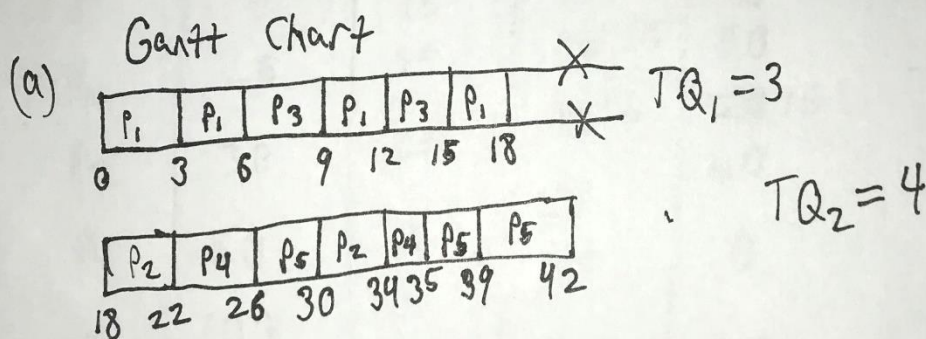 Gantt Chart
(a) P₁ P₁ P₃ P₁ P₃ P₁ TQ₁ = 3
0 3 6 9 12 15 18
TQ₂ = 4
P₂ P₄ P₅ P₂ P₄ P₅ P₅
18 22 26 30 34 35 39 42